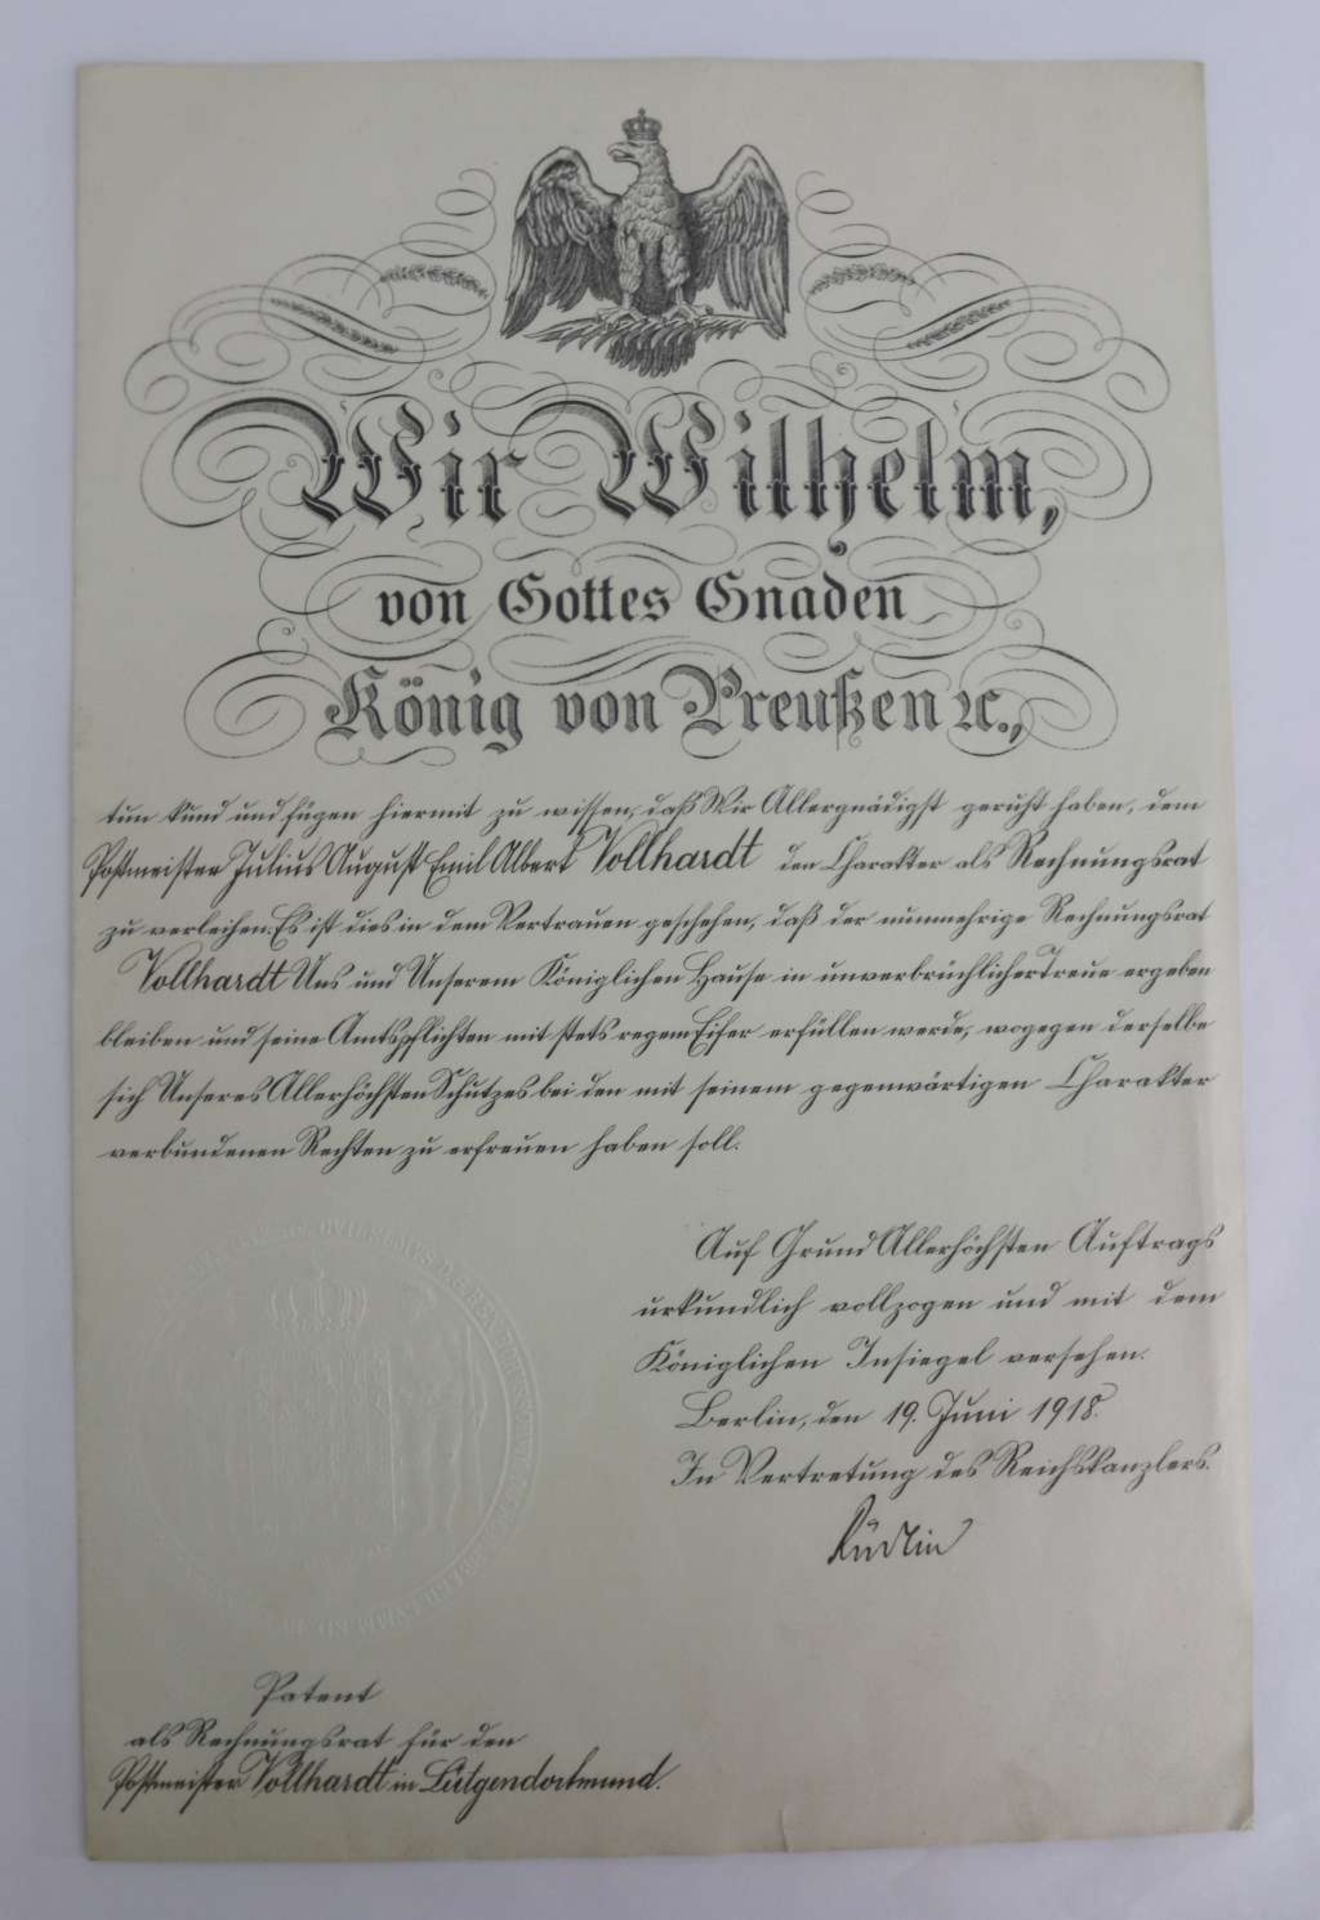 Wir Wilhelm,
von Gottes Gnaden
König von Preußen ꝛc.,
tun kund und fügen hiermit zu wissen, daß Wir Allergnädigst geruht haben, dem
Postmeister Julius August Emil Albert Vollhardt den Charakter als Rechnungsrat
zu verleihen. Es ist dies in dem Vertrauen geschehen, daß der nunmehrige Rechnungsrat
Vollhardt Uns und Unserem Königlichen Hause in unverbrüchlicher Treue ergeben
bleiben und seine Amtspflichten mit stets regem Eifer erfüllen werde, wogegen derselbe
sich Unseres Allerhöchsten Schutzes bei den mit seinem gegenwärtigen Charakter
verbundenen Rechten zu erfreuen haben soll.
Auf Grund Allerhöchsten Auftrags
urkundlich vollzogen und mit dem
Königlichen Insiegel versehen.
Berlin, den 19. Juni 1918.
In Vertretung des Reichskanzlers.
Rüdlin
Patent
als Rechnungsrat für den
Postmeister Vollhardt in Lütgendortmund.